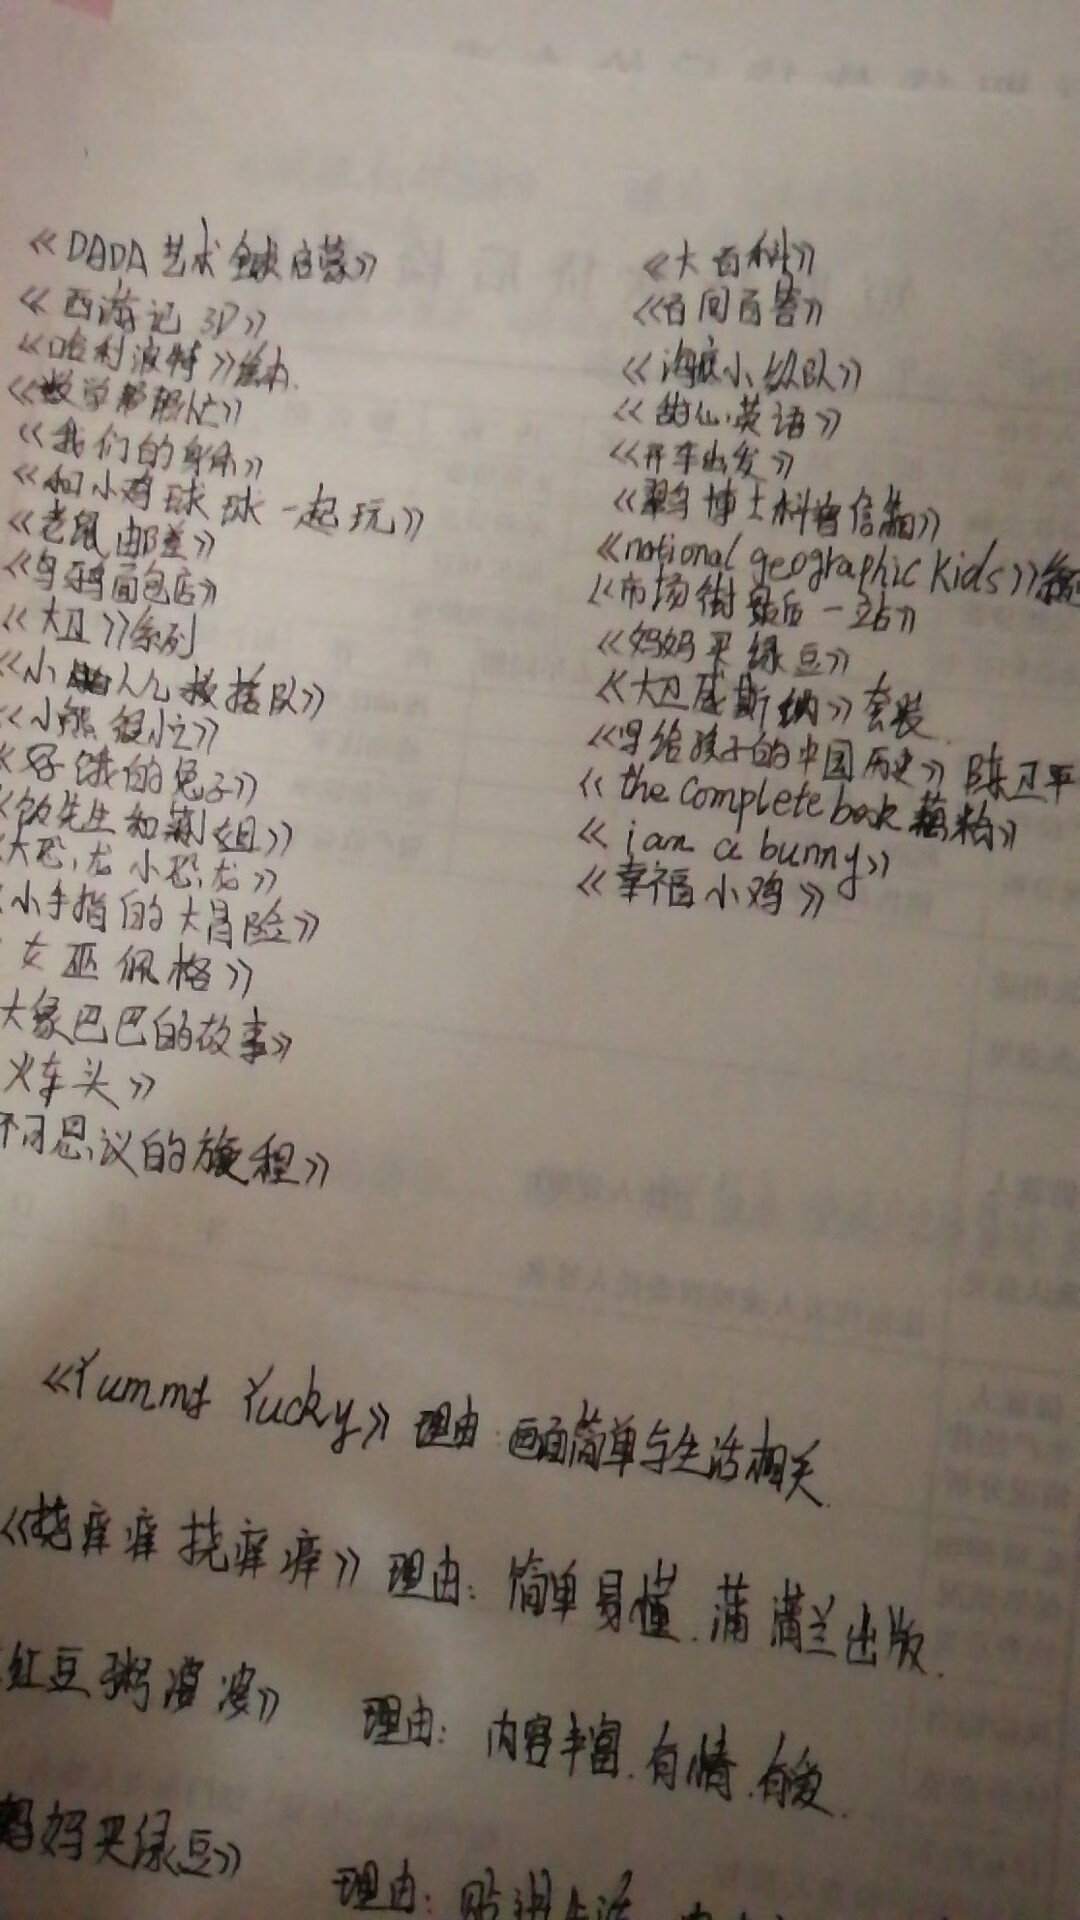 《DADA艺术全球启蒙》
《西游记3D》
《哈利波特》绘本.
《数学帮帮忙》
《我们的身体》
《和小鸡球球一起玩》
《老鼠邮差》
《乌鸦面包店》
《大卫》系列
人儿救援队》
《小熊很小》
《好饿的兔子》
《饭先生和
大恐龙小恐龙》
《小手指的大冒险》
女巫佩格》
大象巴巴的故事》
火车头》
不可思议的旅程》
《大百科》
《百问百答》
《海底小纵队》
英语》
《开车出发》
博士科普信箱》
《national geographic kids》
《市场街最后一站》
《妈妈买绿豆》
《大卫威斯纳》套装
《写给孩子的中国历史》陈卫平
《the complete book
《i am a bunny》
《幸福小鸡》
《Yummy Yucky》理由:画面简单与生活相关.
《挠痒痒挠痒痒》理由:简单易懂.蒲蒲兰出版.
红豆粥婆婆》 理由:内容丰富.有情.有爱.
妈妈买绿豆》 理由:贴近生活